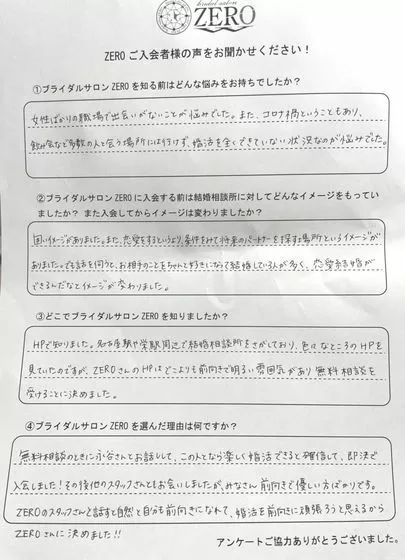 bridal salon
ZERO
ZERO ご入会者様の声をお聞かせください！
①ブライダルサロン ZERO を知る前はどんな悩みをお持ちでしたか？
女性ばかりの職場で出会いがないことが悩みでした。また、コロナ禍ということもあり、
飲み会など多数の人と会う場所には行けず、婚活を全くできていない状況なのが悩みでした。
②ブライダルサロン ZERO に入会する前は結婚相談所に対してどんなイメージをもってい
ましたか？ また入会してからイメージは変わりましたか？
固いイメージがありました。また、恋愛をするというより、条件をみて将来のパートナーを探す場所というイメージが
ありました。でも話を伺うと、お相手のことをちゃんと好きになって結婚している人が多く、恋愛結婚が
できるんだなとイメージが変わりました。
③どこでブライダルサロン ZERO を知りましたか？
HPで知りました。名古屋駅や栄駅周辺で結婚相談所をさがしており、色々なところのHPを
見ていたのですが、ZEROさんのHPはどこよりも前向きで明るい雰囲気があり無料相談を
受けることに決めました。
④ブライダルサロン ZERO を選んだ理由は何ですか？
無料相談のときに永谷さんとお話しして、この人となら楽しく婚活できると確信して、即決で
入会しました！その後他のスタッフさんともお会いしましたが、みなさん前向きで優しい方ばかりです。
ZEROのスタッフさんと話すと自然と自分も前向きになれて、婚活を前向きに頑張ろうと思えるから
ZEROさんに決めました!!
アンケートご協力ありがとうございました。